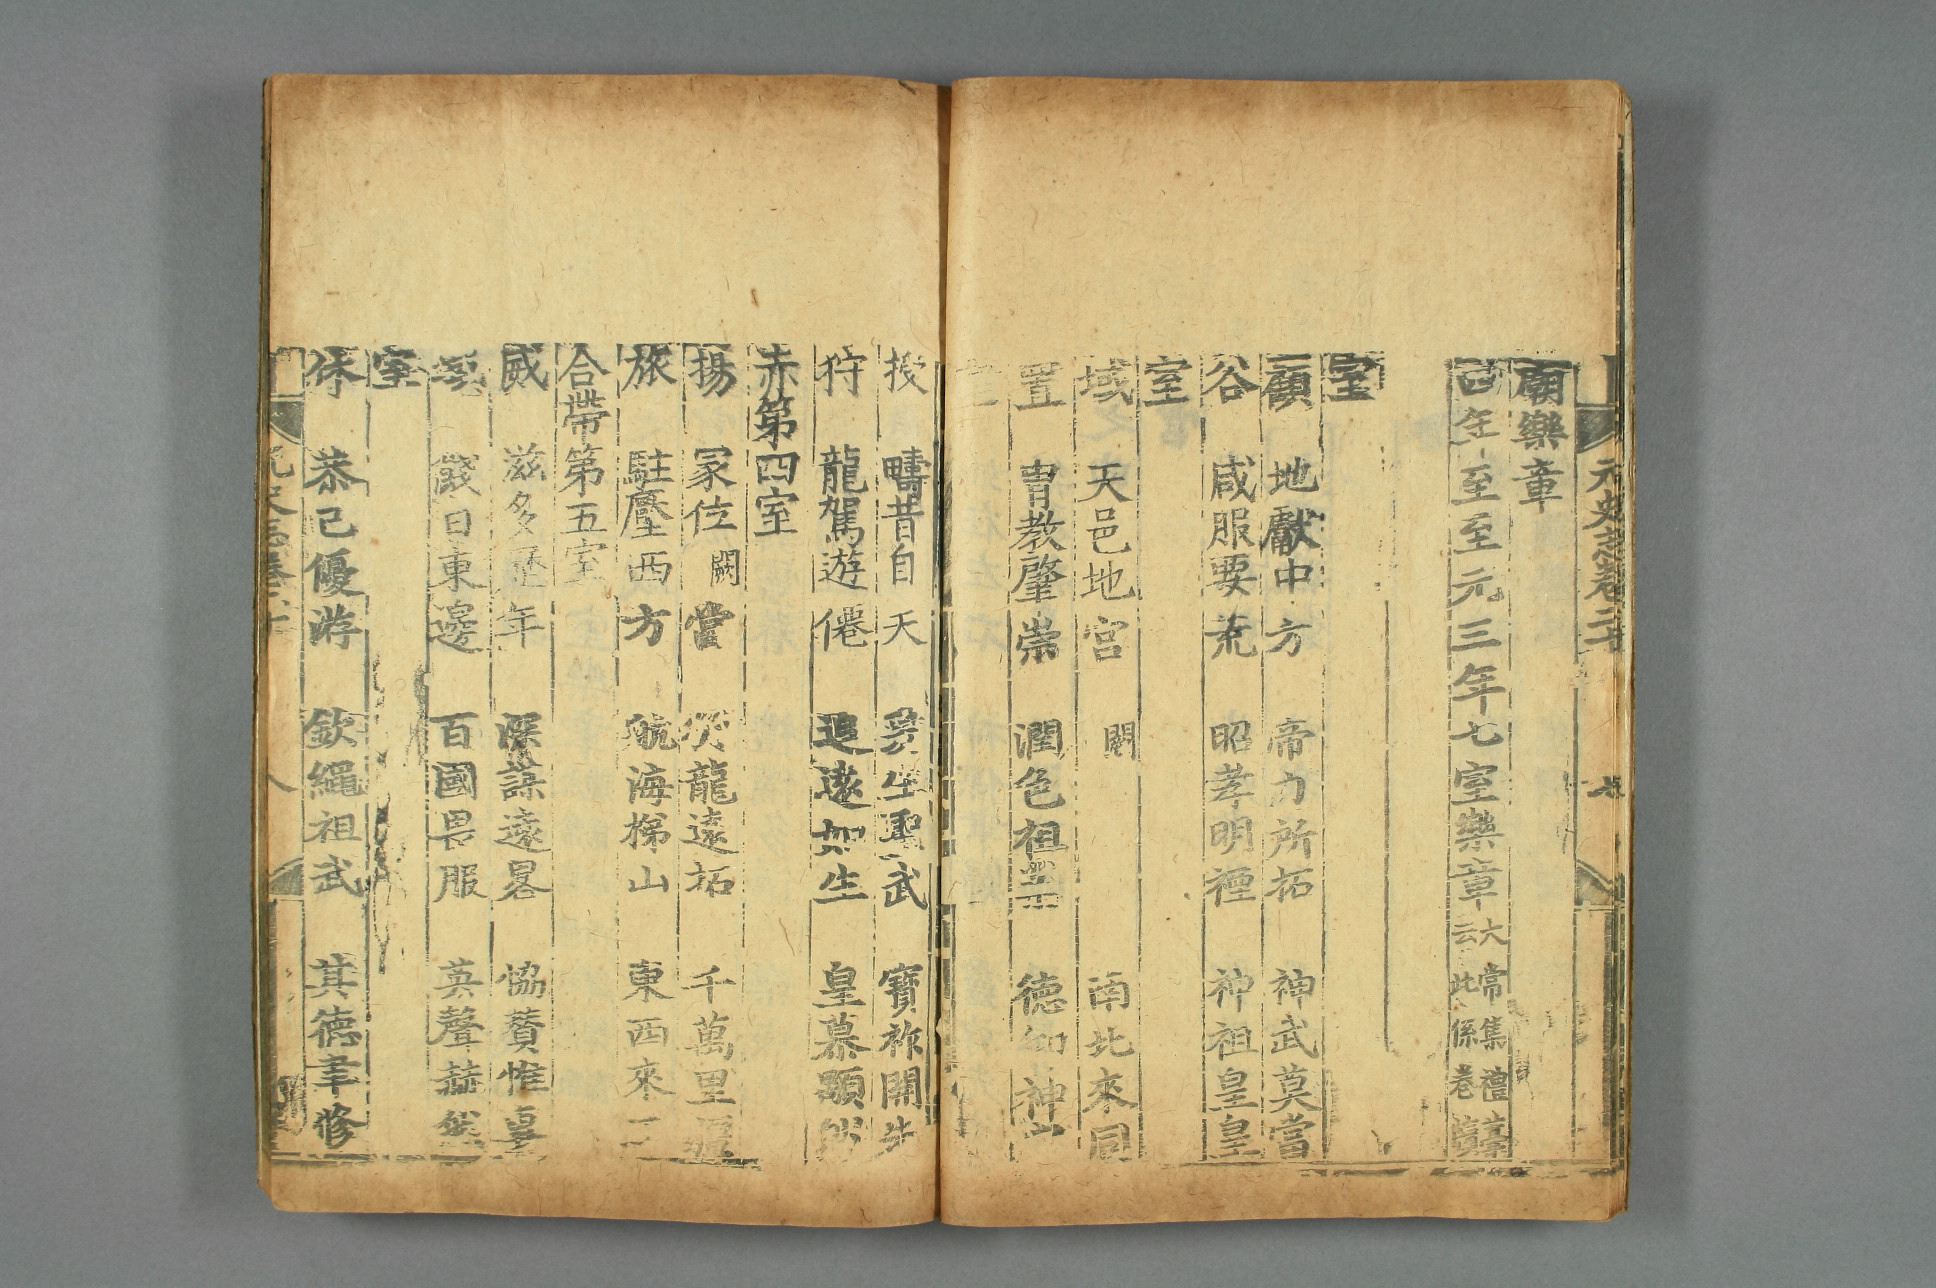 元史志卷二十
七
廟樂章
四年至至元三年七室樂章 太常集禮藁云此係卷
室
顧 地獻中方 帝力所拓 神武莫當
谷 咸服要荒 昭孝明禋 神祖皇皇
室
域 天邑地宮 闕 南北來同
置 胄教肇崇 潤色祖業 德仰神
授 疇昔自天 爰生聖武 寶祚開先
狩 龍駕遊僊 追遠如生 皇慕顯然
赤第四室
揚 冢位闕當 從龍遠拓 千萬里疆
旅 駐壓西方 航海梯山 東西來王
合帶第五室
威 滋多歷年 深謀遠畧 協贊惟專
戎日東邊 百國畏服 英聲赫然
室
休 恭己優游 欽繩祖武 其德聿修
八